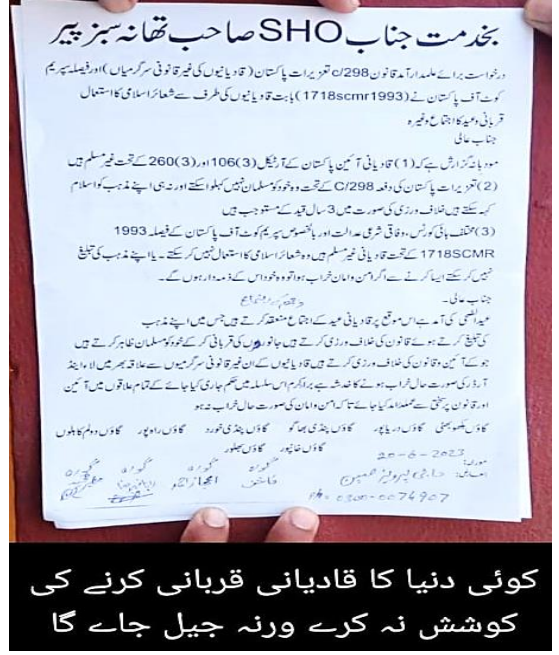 بخدمت جناب SHO صاحب تھانہ سبز پیر
درخواست برائے علمدارآمد قانون 298/c تعزیرات پاکستان (قادیانیوں کی غیر قانونی سرگرمیاں) اور فیصلہ سپریم
کوٹ آف پاکستان نے (1993 scmr 1718) بابت قادیانیوں کی طرف سے شعائر اسلامی کا استعمال
قربانی و عید کا اجتماع وغیرہ
جناب عالی
مودبانہ گزارش ہے کہ (1) قادیانی آئین پاکستان کے آرٹیکل (3) 106 اور (3) 260 کے تحت غیر مسلم ہیں
(2) تعزیرات پاکستان کی دفعہ 298/C کے تحت وہ خود کو مسلمان نہیں کہلوا سکتے اور نہ ہی اپنے مذہب کو اسلام
کہہ سکتے ہیں خلاف ورزی کی صورت میں 3 سال قید کے مستوجب ہیں
(3) مختلف ہائی کورٹس، وفاقی شرعی عدالت اور بالخصوص سپریم کوٹ آف پاکستان کے فیصلہ 1993
1718SCMR کے تحت قادیانی غیر مسلم ہیں وہ شعائر اسلامی کا استعمال نہیں کر سکتے ۔ یا اپنے مذہب کی تبلیغ
نہیں کر سکتے ایسا کرنے سے اگر امن و امان خراب ہوا تو وہ خود اس کے ذمہ دار ہوں گے۔
جناب عالی۔
عید الضحی کی آمد ہے اس موقع پر قادیانی عید کے اجتماع منعقد کرتے ہیں جس میں اپنے مذہب
کی تبلیغ کرتے ہوئے قانون کی خلاف ورزی کرتے ہیں جانوروں کی قربانی کر کے خود کو مسلمان ظاہر کرتے ہیں
جو کے آئین و قانون کی خلاف ورزی کرتے ہیں قادیانیوں کے ان غیر قانونی سرگرمیوں سے علاقہ بھر میں لاء اینڈ
آرڈر کی صورت حال خراب ہونے کا خدشہ ہے براکرم اس سلسلہ میں حکم جاری کیا جائے کے تمام علاقوں میں آئین
اور قانون پر سختی سے عملدرامد کیا جائے تاکہ امن و امان کی صورت حال خراب نہ ہو
گاؤں گلسو بھٹی گاؤں دریا پور گاؤں پنڈی بھاگو گاؤں پنڈی خورد گاؤں راہ پور گاؤں دولم کاہلوں
گاؤں خانپور گاؤں بھلور
20-6-2023
حاجی پرویز حسین
Ph: 0300-0074907
کوئی دنیا کا قادیانی قربانی کرنے کی
کوشش نہ کرے ورنہ جیل جاے گا